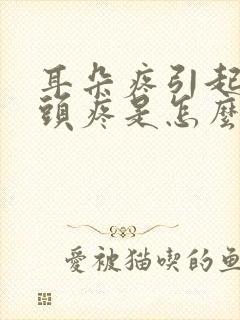 耳朵疼引起
頭疼是怎麼
愛被猫喫的魚